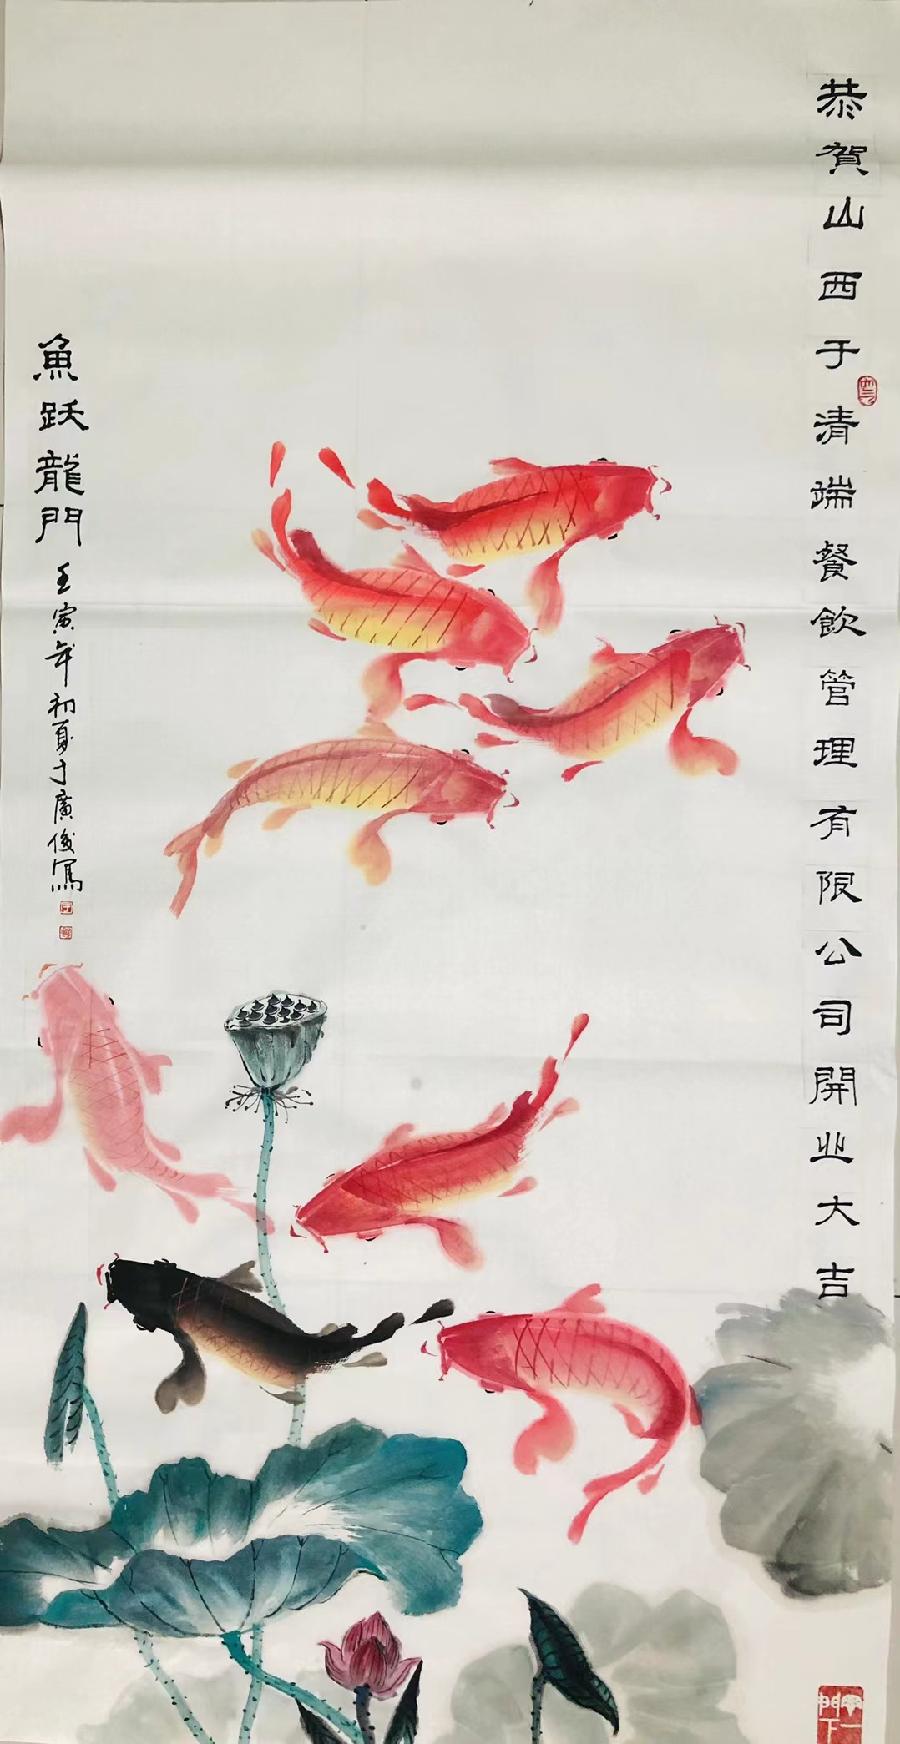 恭贺山西于清端餐飲管理有限公司開业大吉
魚跃龍門
壬寅年初夏于廣俊寫